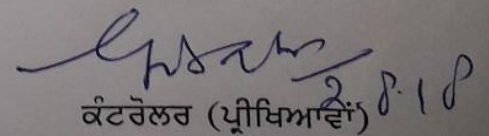 2.8.18
ਕੰਟਰੋਲਰ (ਪ੍ਰੀਖਿਆਵਾਂ)